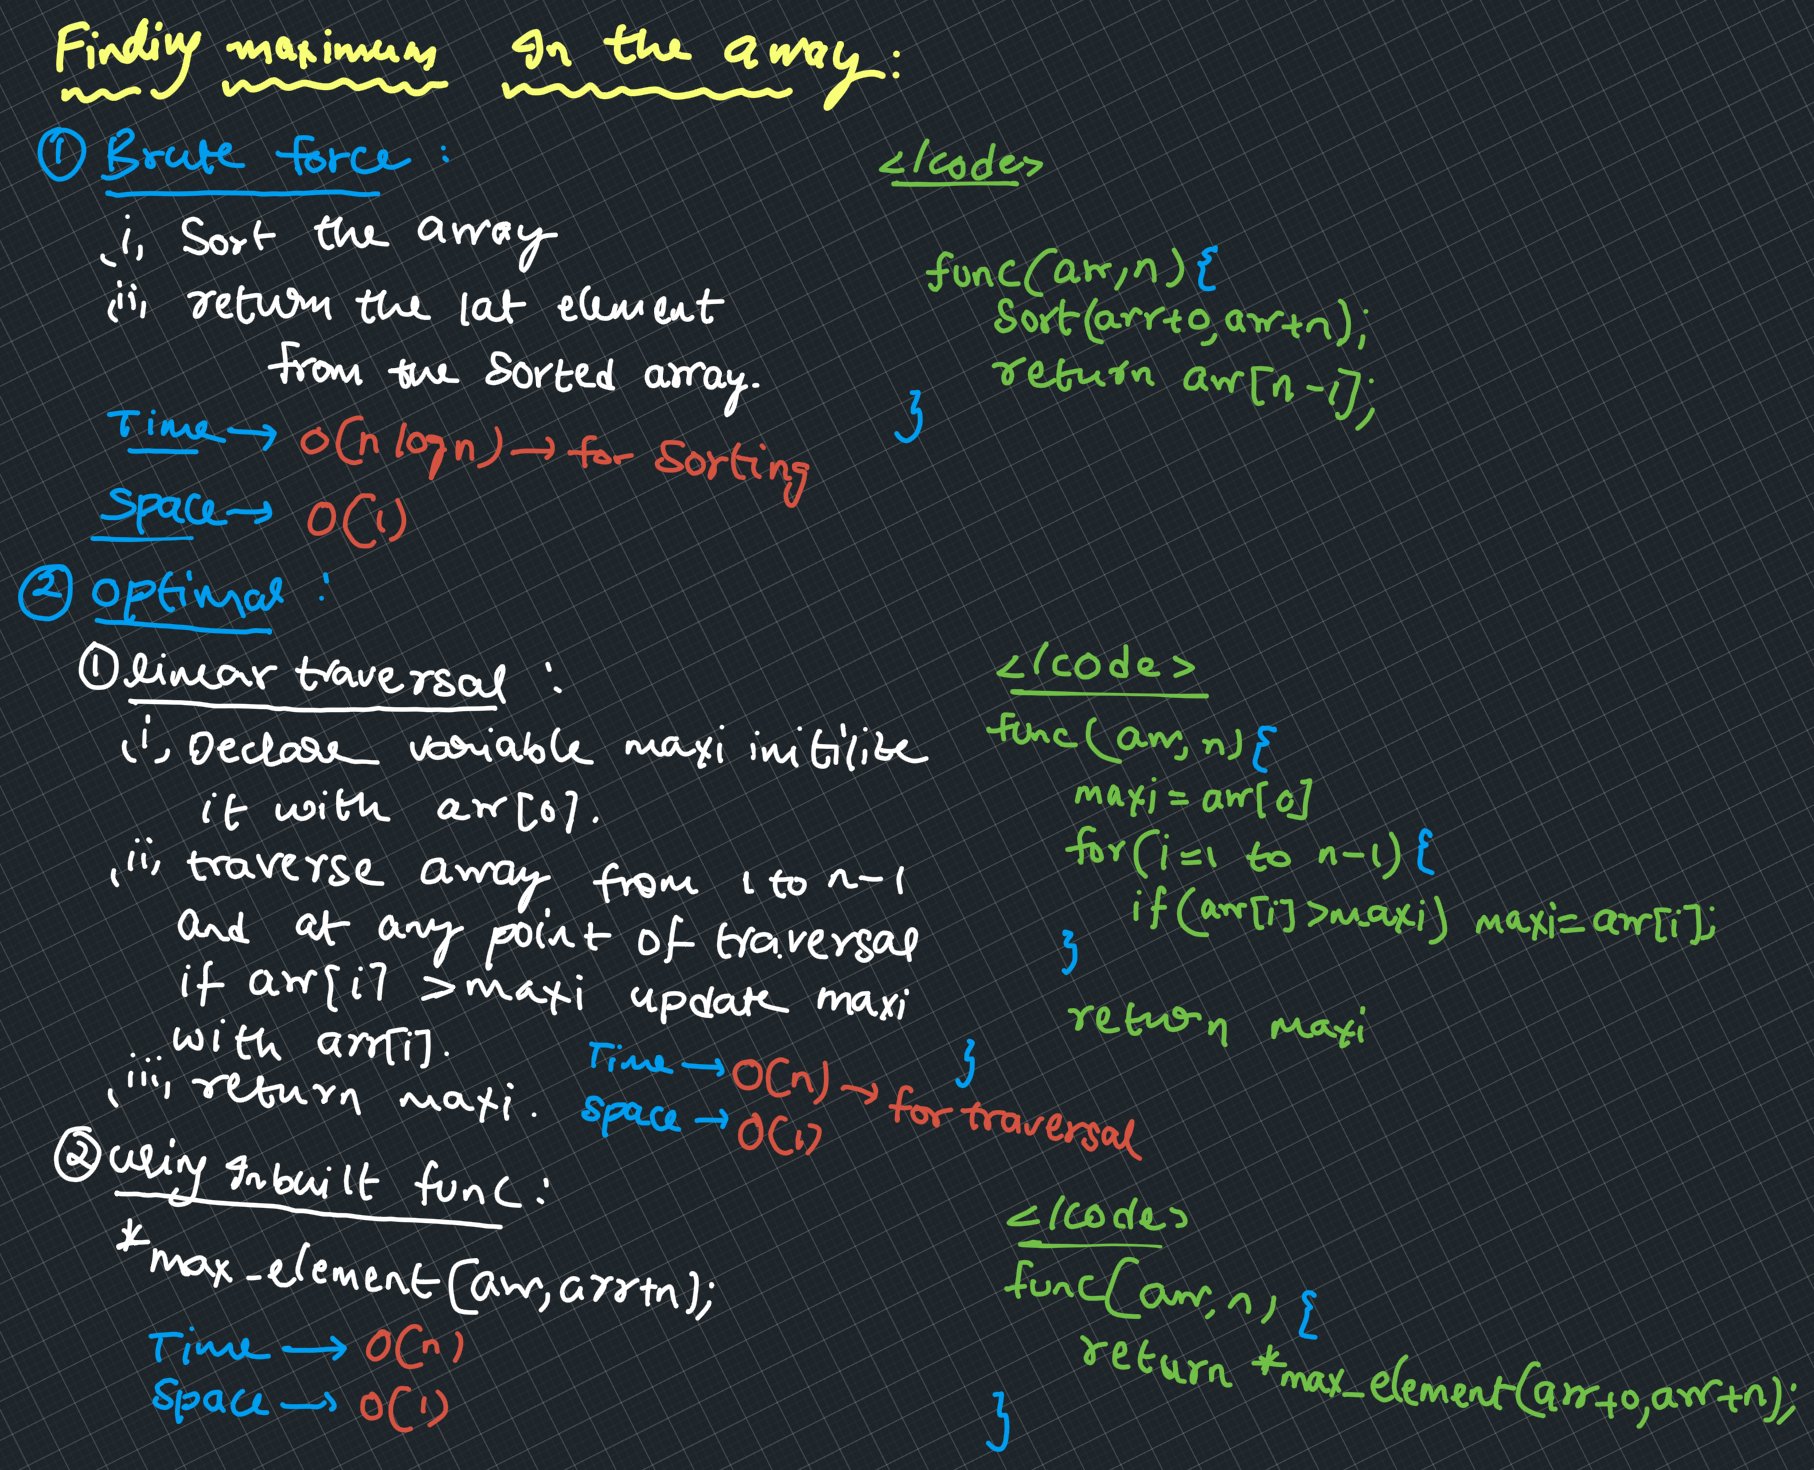 Finding maximum In the array:
① Brute force :
i, Sort the array
ii, return the lat element
from the sorted array.
Time → O(n logn) → for Sorting
Space → O(1)
</code>
func(arr,n) {
Sort(arr+0,arr+n);
return arr[n-1];
}
② optimal :
① linear traversal :
i, Declare variable maxi initilize
it with arr[0].
ii, traverse array from 1 to n-1
and at any point of traversal
if arr[i] >maxi update maxi
with arr[i].
iii, return maxi.
Time → O(n) → for traversal
space → O(1)
</code>
func(arr,n) {
maxi = arr[0]
for(i=1 to n-1) {
if(arr[i]>maxi) maxi=arr[i];
}
return maxi
}
② using Inbuilt func:
*max_element(arr,arr+n);
Time → O(n)
Space → O(1)
</code>
func(arr,n) {
return *max_element(arr+0,arr+n);
}